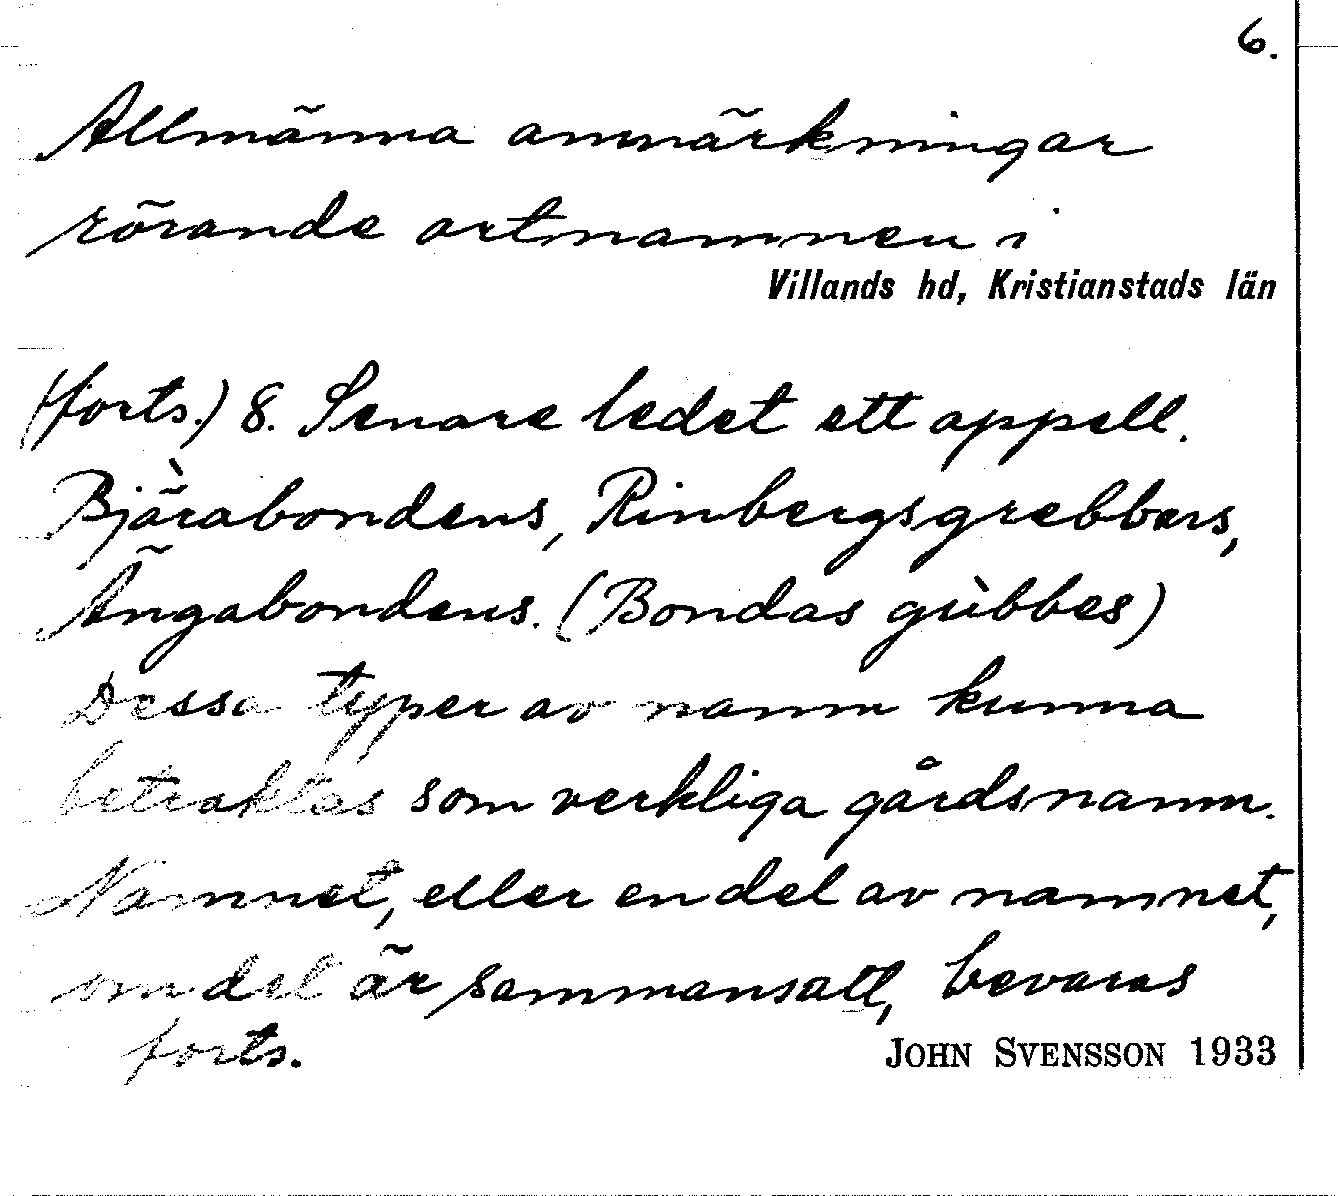 6.
Allmänna anmärkningar
rörande ortnamnen i
Villands hd, Kristianstads län
(forts.) 8. Senare ledet ett appell.
Bjärabondens, Rinbergsgrebbers,
Ängabondens. (Bondas gùbbes)
Dessa typer av namn kunna
betraktas som verkliga gårdsnamn.
Namnet, eller en del av namnet,
om det är sammansatt, bevaras
forts.
JOHN SVENSSON 1933